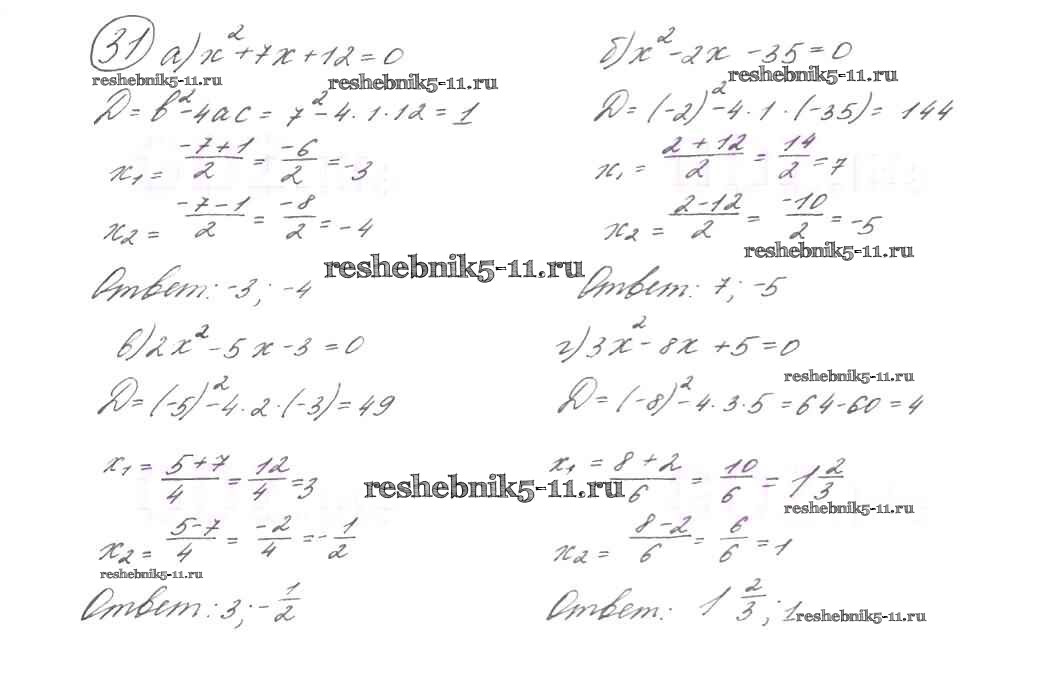 31 а) x² + 7x + 12 = 0
reshebnik5-11.ru reshebnik5-11.ru
D = b² - 4ac = 7² - 4 · 1 · 12 = 1
x₁ = (-7+1)/2 = -6/2 = -3
x₂ = (-7-1)/2 = -8/2 = -4
reshebnik5-11.ru
Ответ: -3; -4
б) x² - 2x - 35 = 0
reshebnik5-11.ru
D = (-2)² - 4 · 1 · (-35) = 144
x₁ = (2+12)/2 = 14/2 = 7
x₂ = (2-12)/2 = -10/2 = -5
reshebnik5-11.ru
Ответ: 7; -5
в) 2x² - 5x - 3 = 0
D = (-5)² - 4 · 2 · (-3) = 49
x₁ = (5+7)/4 = 12/4 = 3
reshebnik5-11.ru
x₂ = (5-7)/4 = -2/4 = -1/2
reshebnik5-11.ru
Ответ: 3; -1/2
г) 3x² - 8x + 5 = 0
reshebnik5-11.ru
D = (-8)² - 4 · 3 · 5 = 64 - 60 = 4
x₁ = (8+2)/6 = 10/6 = 1 2/3
reshebnik5-11.ru
x₂ = (8-2)/6 = 6/6 = 1
Ответ: 1 2/3; 1
reshebnik5-11.ru